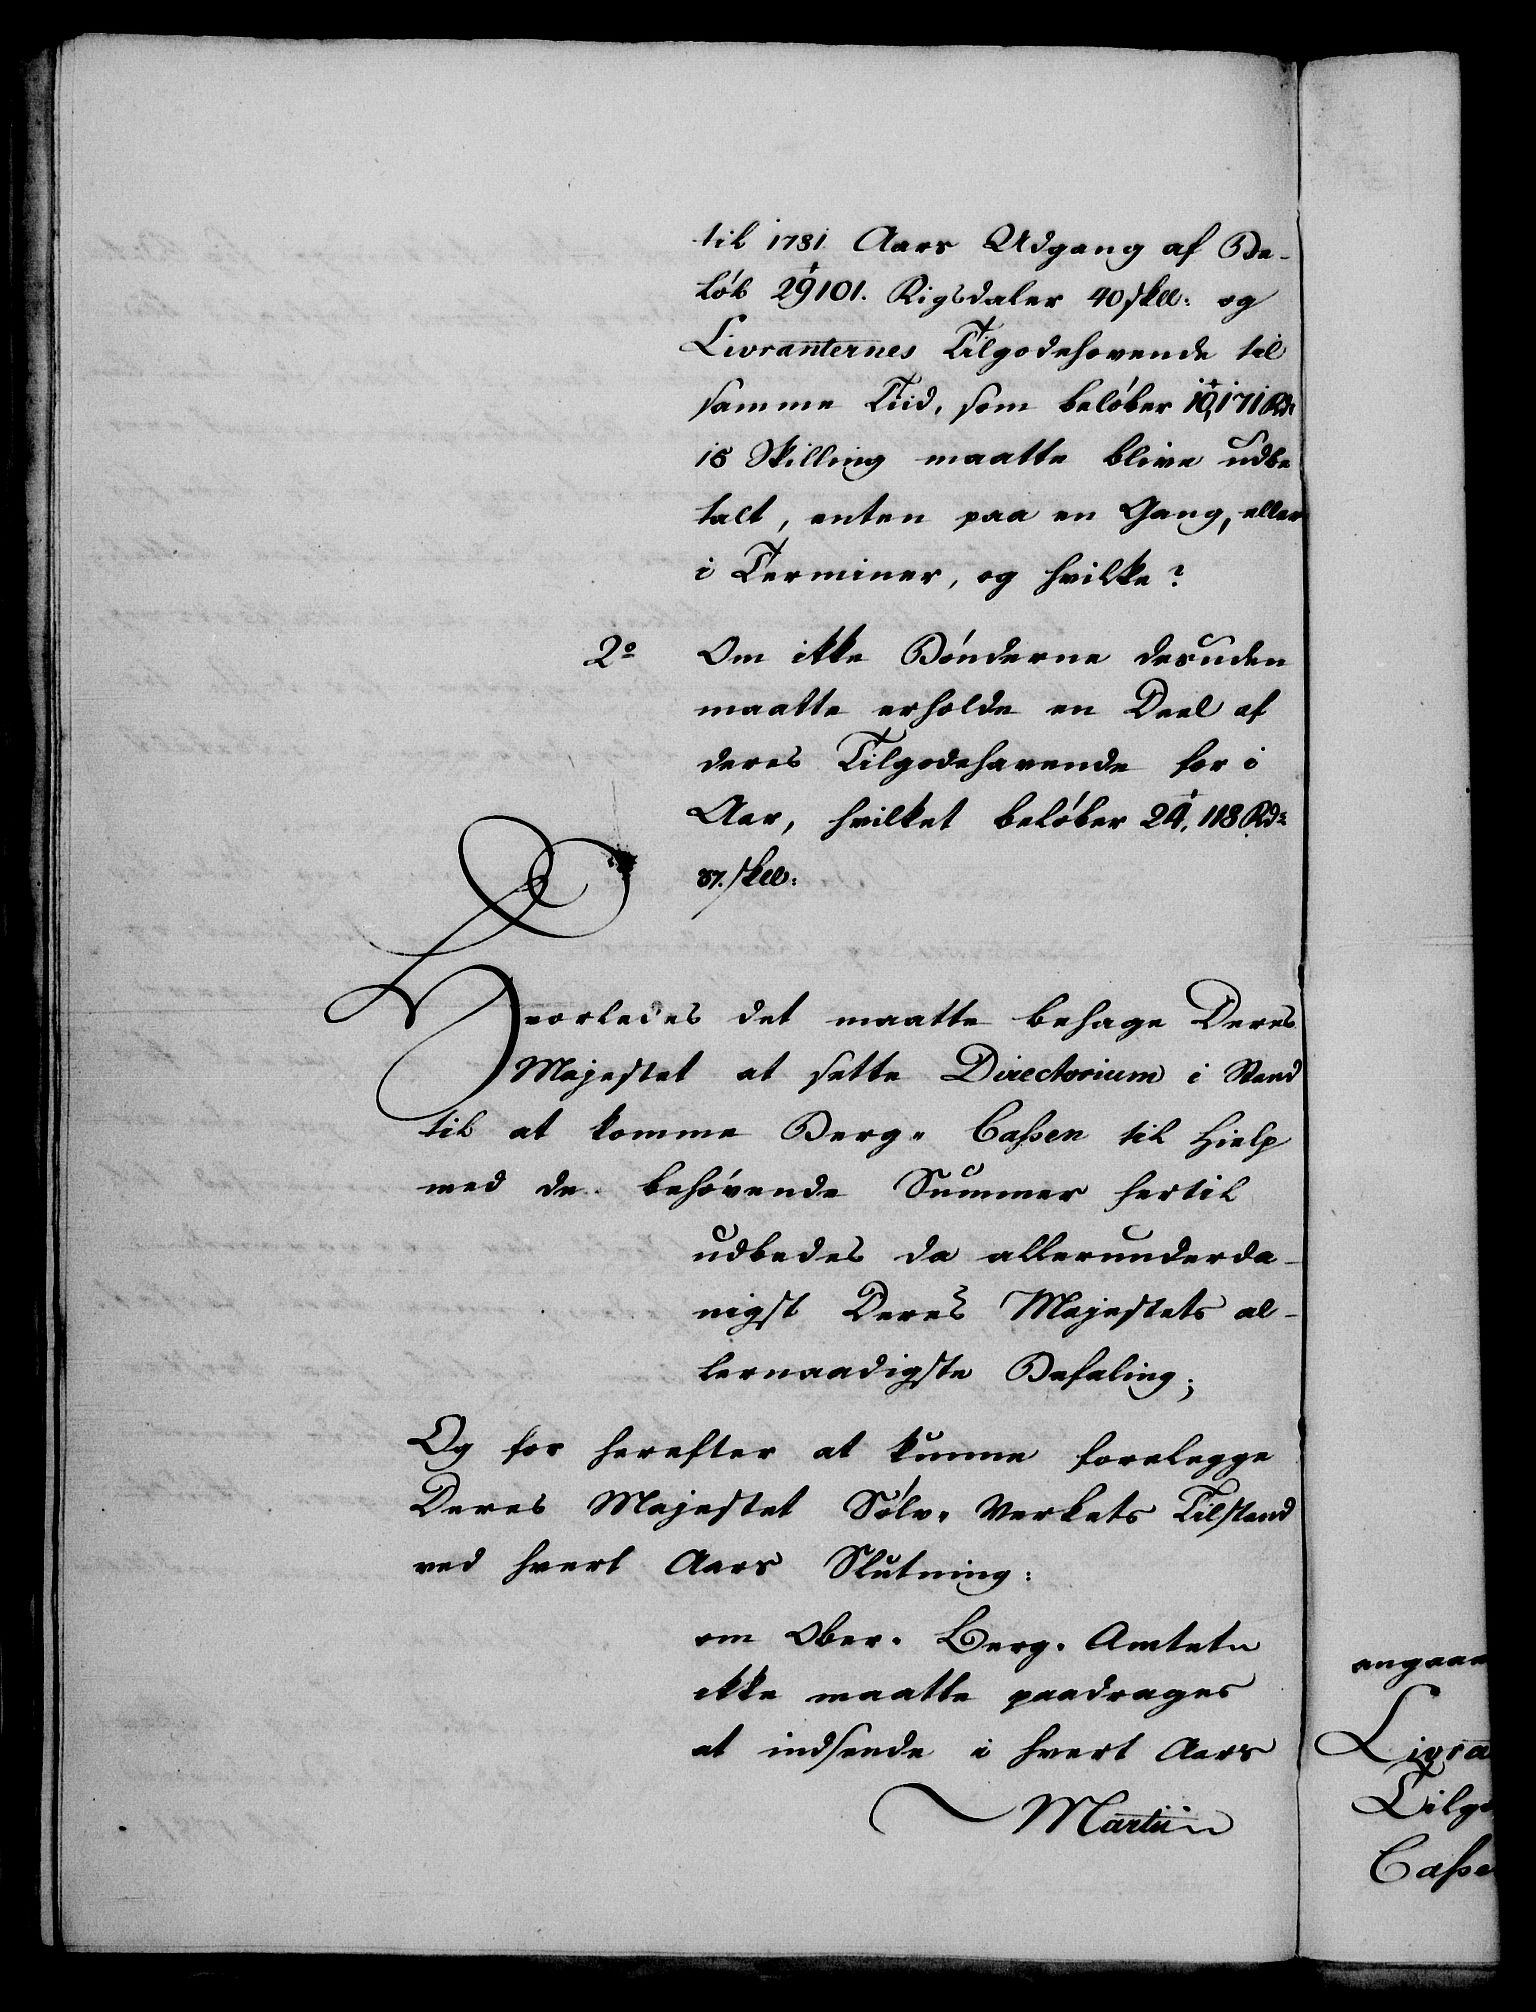 til 1781 Aars Udgang af Be-
løb 29101. Rigsdaler 40 skll: og
Livranternes Tilgodehavende til
samme Tiid, som beløber 10,171 Rd:
18 Skilling maatte blive udbe
talt, enten paa en Gang, eller
i Terminer, og hvilke?
2º Om ikke Bønderne desuden
maatte erholde en Deel af
deres Tilgodehavende for i
Aar, hvilket beløber 24,118 Rd:
87. skll:
Hvorledes det maatte behage Deres
Majestet at sette Directorium i Stand
til at komme Berg- Cassen til Hielp
med de behøvende Summer hertil
udbedes da allerunderda-
nigst Deres Majestets al-
lernaadigste Befaling;
Og for herefter at kunne forelegge
Deres Majestet Sølv- Verkets Tilstand
ved hvert Aars Slutning:
om Ober- Berg- Amtet
ikke maatte paadrages
at indsende i hvert Aars
Martii
angaae
Livra
Tilgo
Casse